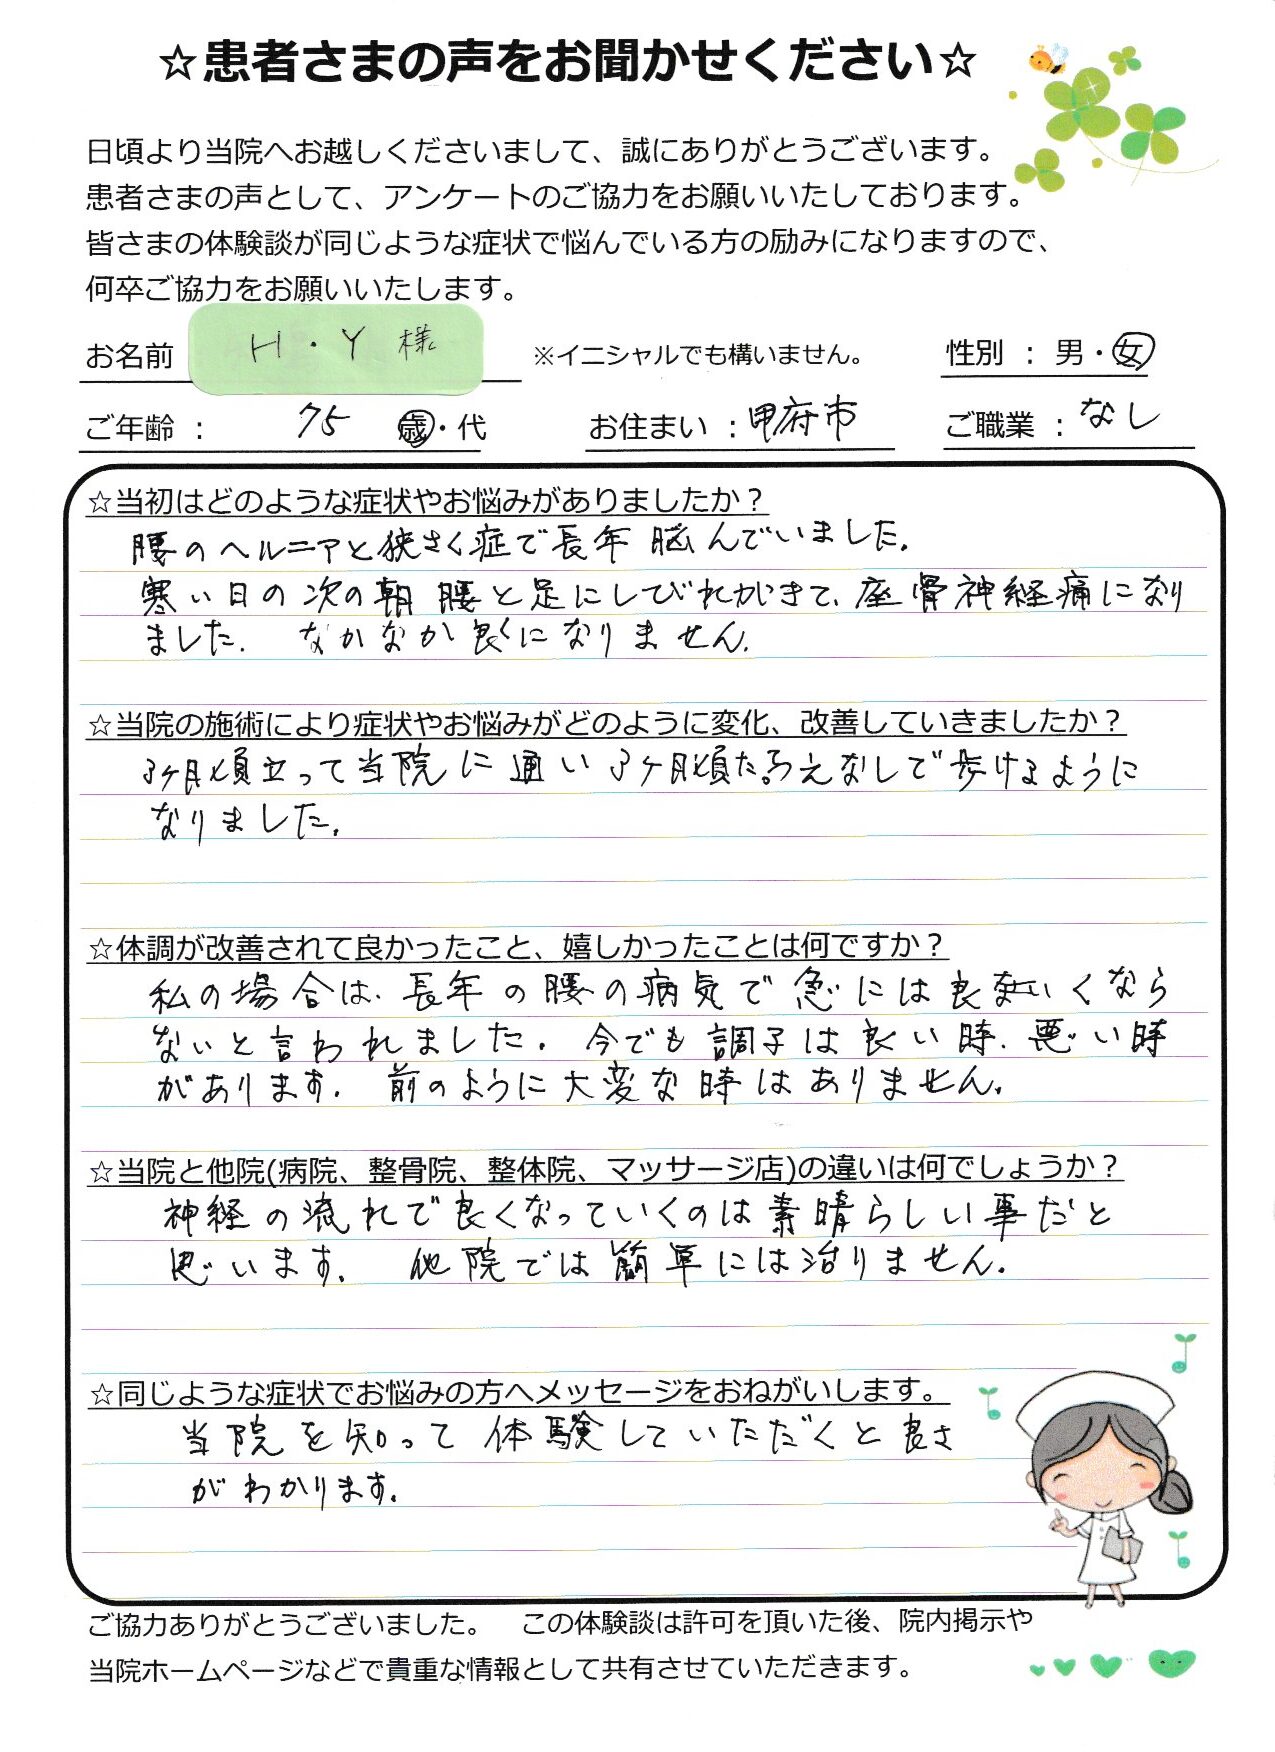 ☆患者さまの声をお聞かせください☆
日頃より当院へお越しくださいまして、誠にありがとうございます。
患者さまの声として、アンケートのご協力をお願いいたしております。
皆さまの体験談が同じような症状で悩んでいる方の励みになりますので、
何卒ご協力をお願いいたします。
お名前 H・Y様 ※イニシャルでも構いません。 性別 : 男・女
ご年齢 : 75 歳・代 お住まい : 甲府市 ご職業 : なし
☆当初はどのような症状やお悩みがありましたか？
腰のヘルニアと狭さく症で長年脳んでいました.
寒い日の次の朝腰と足にしびれがきて、座骨神経痛になり
ました. なかなか良くになりません.
☆当院の施術により症状やお悩みがどのように変化、改善していきましたか？
3ヶ月頃立って当院に通い3ヶ月頃たろえなしで歩けるように
なりました.
☆体調が改善されて良かったこと、嬉しかったことは何ですか？
私の場合は、長年の腰の病気で急には良くなら
ないと言われました. 今でも調子は良い時、悪い時
があります. 前のように大変な時はありません.
☆当院と他院(病院、整骨院、整体院、マッサージ店)の違いは何でしょうか？
神経の流れで良くなっていくのは素晴らしい事だと
思います. 他院では簡単には治りません.
☆同じような症状でお悩みの方へメッセージをおねがいします。
当院を知って体験していただくと良さ
がわかります.
ご協力ありがとうございました。 この体験談は許可を頂いた後、院内掲示や
当院ホームページなどで貴重な情報として共有させていただきます。